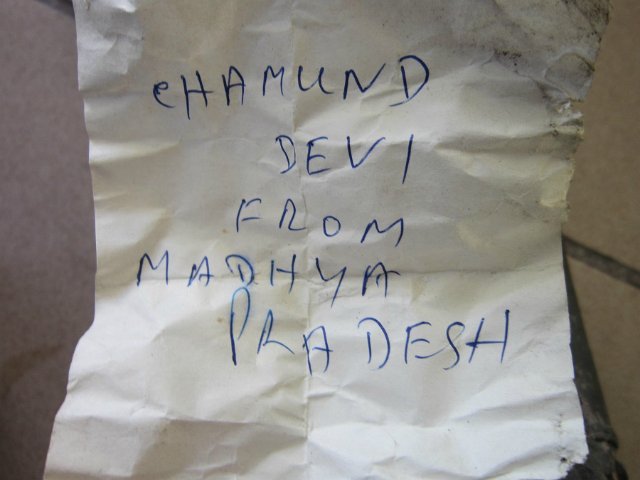 CHAMUND
DEVI
FROM
MADHYA
PRADESH